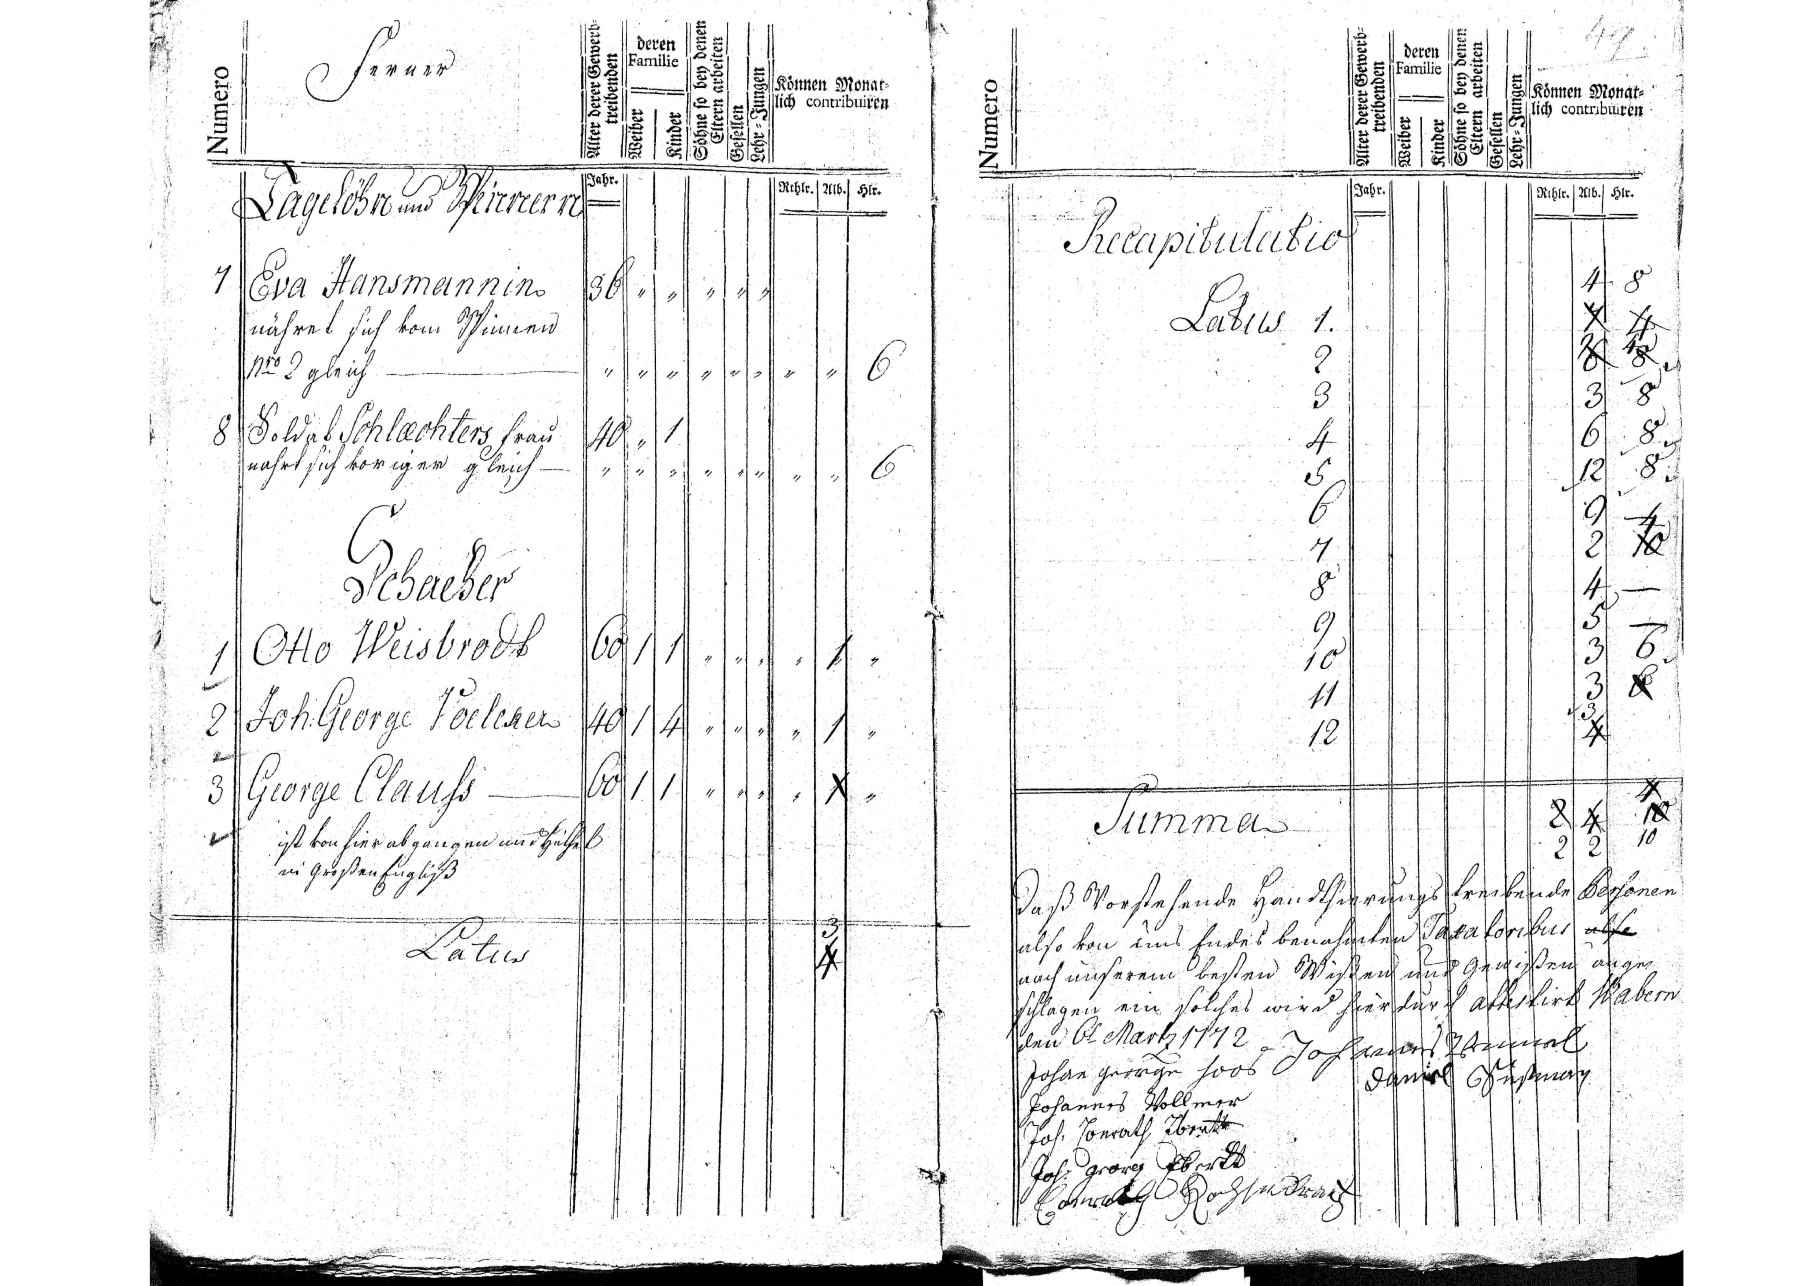 Numero
Ferner
Alter derer Gewerb-
treibenden
deren
Familie
Weiber
Kinder
Söhne so bey denen
Eltern arbeiten
Gesellen
Lehr-Jungen
Können Monat-
lich contribuiren
Jahr.
Rthlr. Alb. Hlr.
Tagelöhn und Spinnern
7 Eva Hansmannin 36 " " " " "
nähret sich vom Spinnen
Nro 2 gleich — " " " " " " " " 6
8 Soldat Schlaechters frau 40 " 1
nährt sich voriger gleich — " " " " " " " " 6
Schaefer
1 Otto Weisbrodt 60 1 1 " " " " 1 "
2 Joh: George Voelcker 40 1 4 " " " " 1 "
3 George Clauss — 60 1 1 " " " " 1 "
ist von hier abgangen und
in Großen Engliß
3
Latus 4
49
Numero
Alter derer Gewerb-
treibenden
deren
Familie
Weiber
Kinder
Söhne so bey denen
Eltern arbeiten
Gesellen
Lehr-Jungen
Können Monat-
lich contribuiren
Jahr.
Rthlr. Alb. Hlr.
Recapitulatio
4 8
Latus 1. 7 4
2 8 8
3 3 8
4 6 8
5 12 8
6 9 4
7 2 10
8 4 —
9 5 —
10 3 6
11 3 6
3
12 4
4
Summa 2 4 10
2 2 10
Daß Vorstehende Handthierungs treibende Personen
also von uns Endes benahmten Taxatoribus also
nach unserem besten Wißen und Gewißen ange-
schlagen ein solches wird hierdurch attestirt Wabern
den 6t Martz 1772
Johan george Hoos Johannes
Daniel Süßman
Johannes Vollmer
Joh. Conrath
Joh: georg Eberdt
Conrath